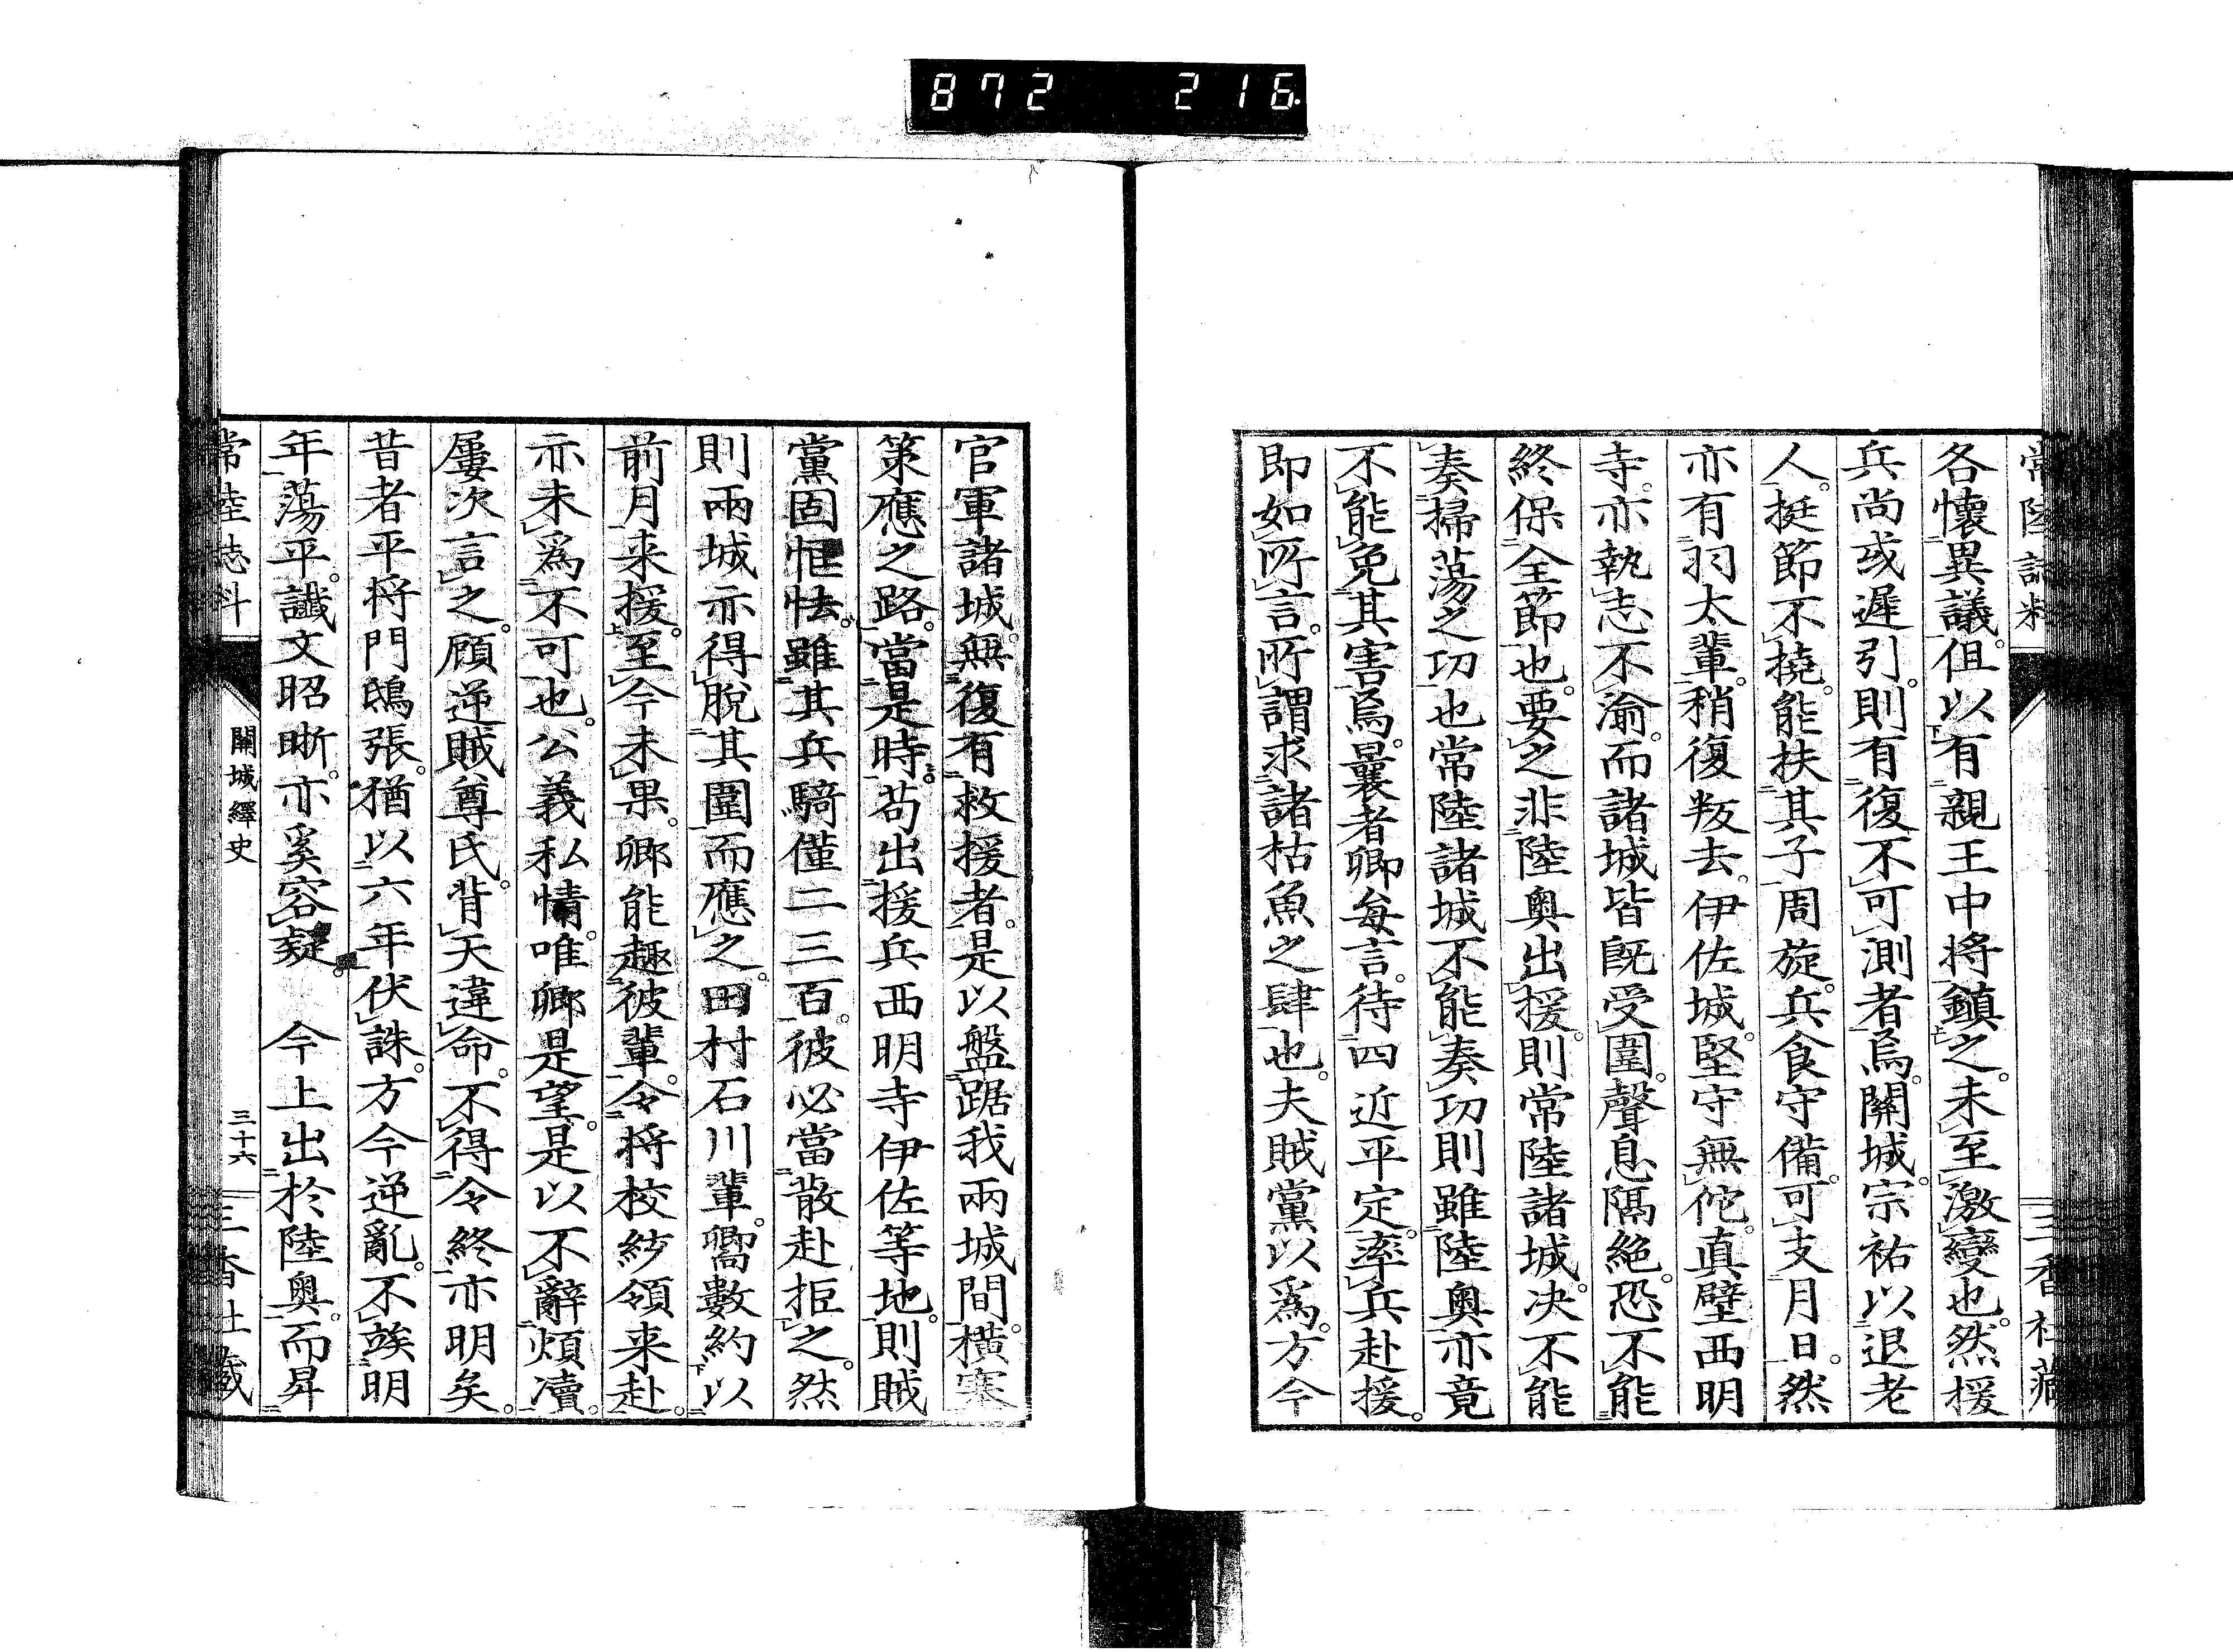 872 216
常陸誌料
三香社藏
各懷異議。但以有親王中将鎮之。未至激變也。然援
兵尚或遲引。則有復不可測者。烏。關城。宗祐以退老
人。挺節不撓。能扶其子周旋。兵食守備。可支月日。然
亦有羽太輩。稍復叛去。伊佐城。堅守無佗。真壁西明
寺。亦執志不渝。而諸城皆既受圍。聲息隔絶。恐不能
終保全節也。要之非陸奥出援。則常陸諸城。决不能
奏掃蕩之功也常陸諸城不能奏功則雖陸奥亦竟
不能免其害烏。曩者卿每言。待四近平定。率兵赴援。
即如所言。所謂求諸枯魚之肆也。夫賊黨以爲。方今
官軍諸城。無復有救援者。是以盤踞我兩城間。橫塞
策應之路。當是時。苟出援兵西明寺伊佐等地。則賊
黨固恇怯。雖其兵騎僅二三百。彼必當散赴拒之。然
則兩城亦得脫其圍而應之。田村石川輩。嚮數約以
前月来援。至今未果。卿能趣彼輩。令将校紗領来赴。
亦未爲不可也。公義私情。唯卿是望。是以不辭煩瀆。
屢次言之。顧逆賊尊氏。背天違命。不得令終。亦明矣。
昔者平将門鴟張。猶以六年伏誅。方今逆亂。不竢明
年。蕩平。讖文昭晰。亦奚容疑。 今上出於陸奥。而昇
常陸誌料
關城繹史
三十六
三香社藏